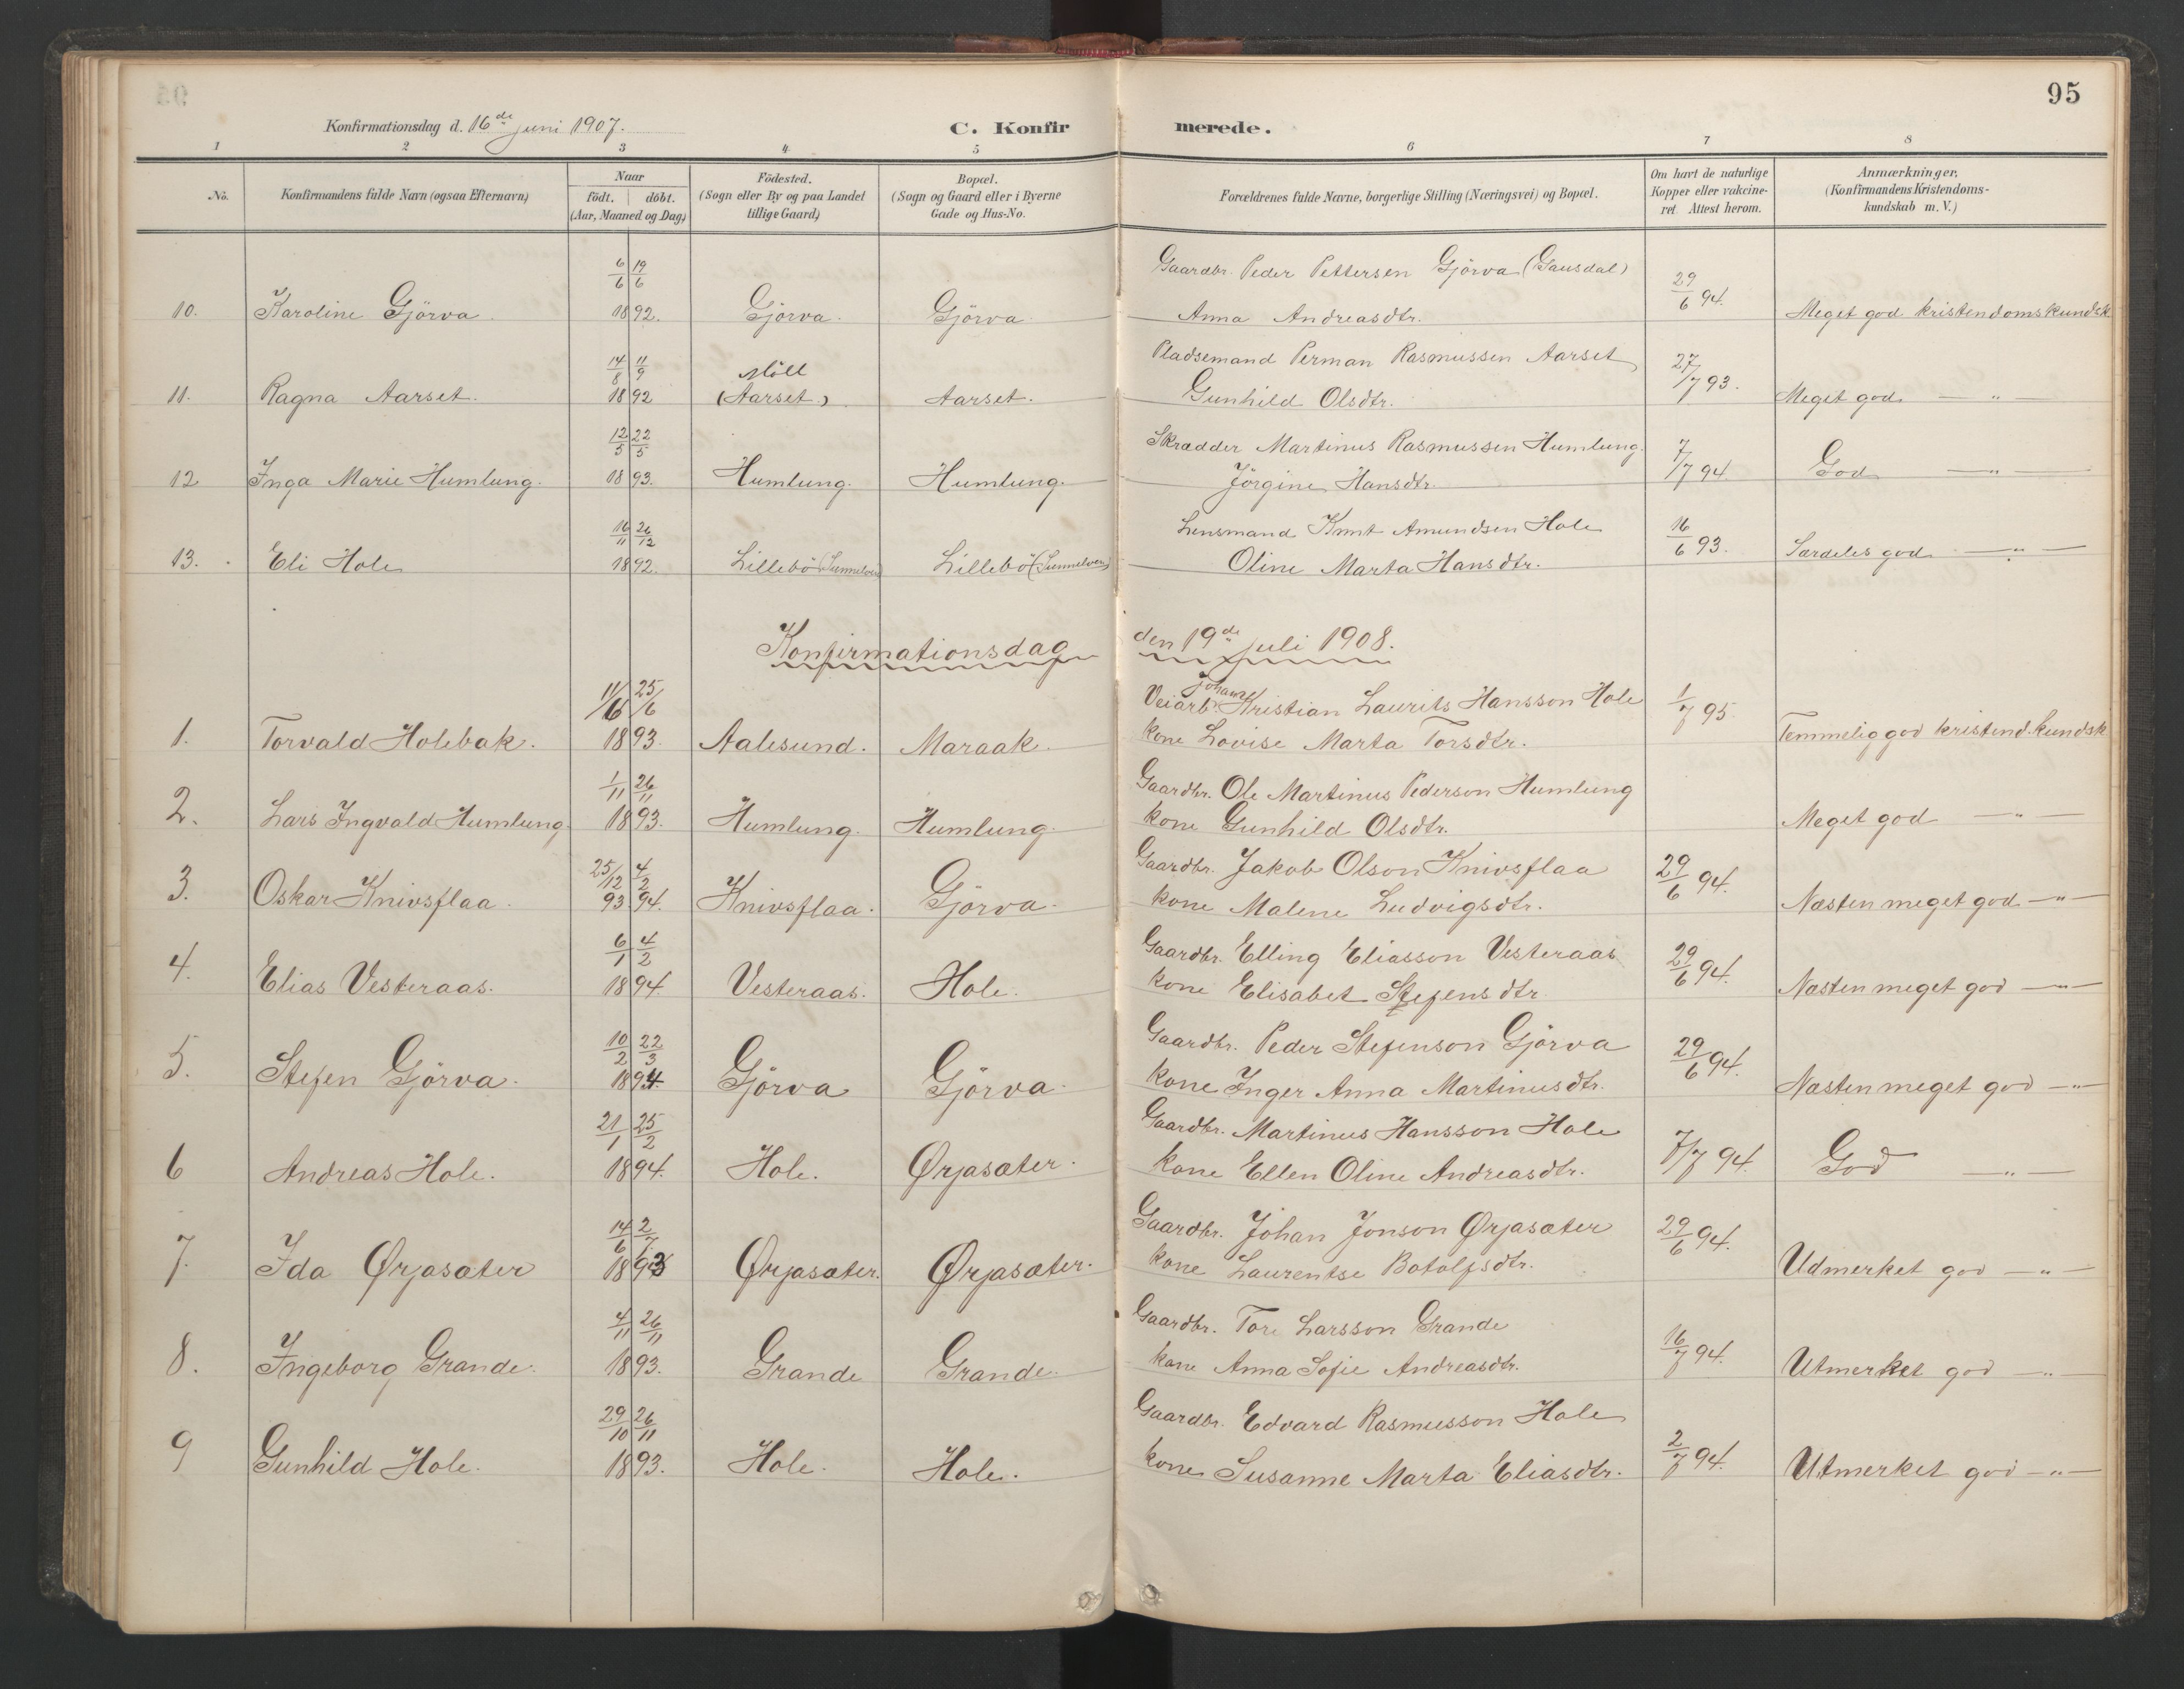 95
Konfirmationsdag d. 16de juni 1907. C. Konfirmerede.
1 2 3 4 5 6 7 8
No.
Konfirmandens fulde Navn (ogsaa Efternavn)
Naar
födt. döbt.
(Aar, Maaned og Dag)
Födested.
(Sogn eller By og paa Landet
tillige Gaard)
Bopæl.
(Sogn og Gaard eller i Byerne
Gade og Hus-No.
Forældrenes fulde Navne, borgerlige Stilling (Næringsvei) og Bopæl.
Om havt de naturlige
Kopper eller vakcine-
ret. Attest herom.
Anmærkninger.
(Konfirmandens Kristendoms-
kundskab m. V.)
6/6 19/6 Gaardbr. Peder Pettersen Gjörva (Gausdal) 29/6 94.
10. Karoline Gjörva 1892. Gjörva. Gjörva Anna Andreasdtr. Meget god kristendomskundsk
14/8 11/9 Möll Pladsemand Perman Rasmussen Aarset 27/7 93.
11. Ragna Aarset. 1892 (Aarset.) Aarset. Gunhild Olsdtr. Meget god — „ —
12/5 22/5 Skrædder Martinus Rasmussen Humlung. 7/7 94.
12 Inga Marie Humlung. 1893. Humlung. Humlung. Jörgine Hansdtr. God — „ —
16/11 26/12 Lensmand Knut Amundsen Hole 16/6 93.
13. Eli Hole 1892. Lillebö (Sunnelven) Lillebö (Sunnelven) Oline Marta Hansdtr. Særdeles god — „ —
Konfirmationsdag den 19de juli 1908.
11/6 25/6 Veiarb. Johan Kristian Laurits Hansson Hole 1/7 95.
1. Torvald Holebak. 1893. Aalesund. Maraak. kone Lovise Marta Torsdtr. Temmelig god kristend.kundsk
1/11 26/11 Gaardbr. Ole Martinus Pederson Humlung
2. Lars Ingvald Humlung. 1893. Humlung. Humlung. kone Gunhild Olsdtr. Meget god — „ —
25/12 4/2 Gaardbr. Jakob Olson Knivsflaa 29/6 94.
3. Oskar Knivsflaa. 93. 94. Knivsflaa. Gjörva. kone Malene Ludvigsdtr. Næsten meget god — „ —
6/1 4/2 Gaardbr. Elling Eliasson Vesteraas 29/6 94.
4. Elias Vesteraas. 1894. Vesteraas. Hole. kone Elisabet Stefensdtr. Næsten meget god — „ —
10/2 22/3 Gaardbr. Peder Stefenson Gjörva 29/6 94.
5. Stefen Gjörva. 1894 Gjörva Gjörva. kone Inger Anna Martinusdtr. Næsten meget god — „
21/1 25/2 Gaardbr. Martinus Hansson Hole 7/7 94.
6 Andreas Hole. 1894. Hole. Ørjasæter. kone Ellen Oline Andreasdtr. God — „ —
14/6 2/7 Gaardbr. Johan Jonson Ørjasæter 29/6 94.
7. Ida Ørjasæter 1893 Ørjasæter. Ørjasæter. kone Laurentse Botolfsdtr. Udmerket god — „ —
4/11 26/11 Gaardbr. Tore Larsson Grande 16/7 94.
8. Ingeborg Grande. 1893. Grande Grande. kone Anna Sofie Andreasdtr. Utmerket god — „ —
29/10 26/11 Gaardbr. Edvard Rasmusson Hole 2/7 94.
9 Gunhild Hole. 1893. Hole. Hole. kone Susanne Marta Eliasdtr. Utmerket god — „ —